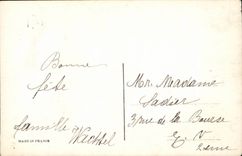 Bonne
fête
famille Wachtel
MADE IN FRANCE
Mr. Madame
Sadier
3 rue de la Bourse
E. V
2eme